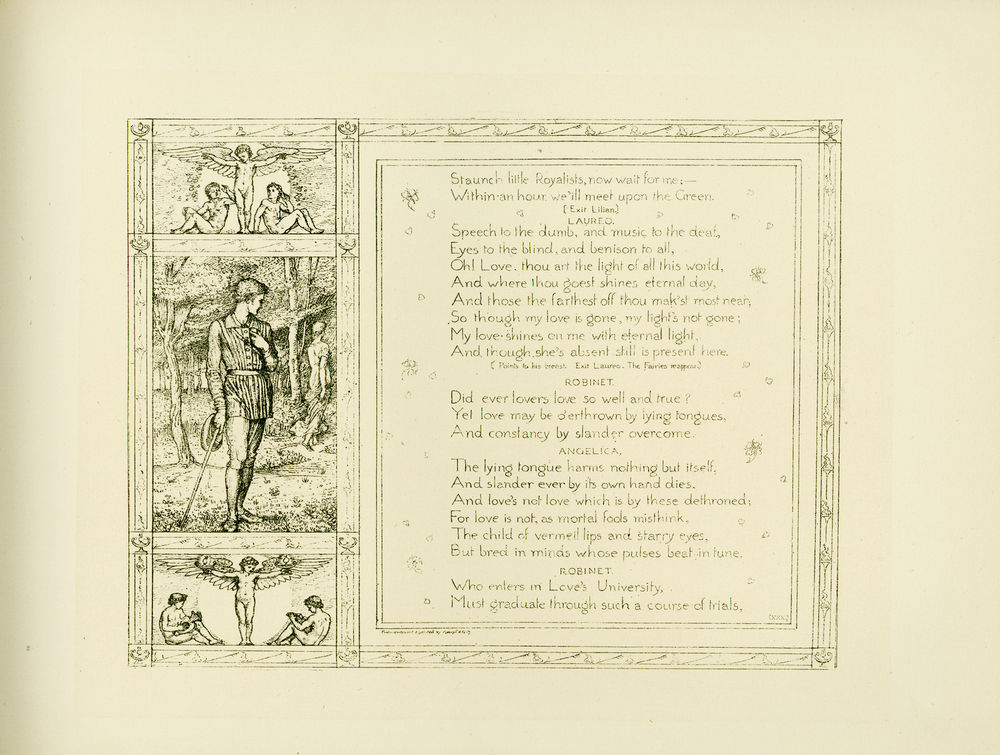 Staunch little Royalists, now wait for me;—
Within an hour we'ill meet upon the Green.
[Exit Lilian.]
LAUREO.
Speech to the dumb, and music to the deaf,
Eyes to the blind, and benison to all,
Oh! Love, thou art the light of all this world,
And where thou goest shines eternal day,
And those the farthest off thou mak'st most near;
So though my love is gone, my light's not gone;
My love shines on me with eternal light,
And, though she's absent still is present here.
[Points to his breast. Exit Laureo. The Fairies reappear.]
ROBINET.
Did ever lovers love so well and true?
Yet love may be o'erthrown by lying tongues,
And constancy by slander overcome.
ANGELICA,
The lying tongue harms nothing but itself,
And slander ever by its own hand dies,
And love's not love which is by these dethroned;
For love is not, as mortal fools misthink,
The child of vermeil lips and starry eyes,
But bred in minds whose pulses beat in tune.
ROBINET.
Who enters in Love's University,
Must graduate through such a course of trials.